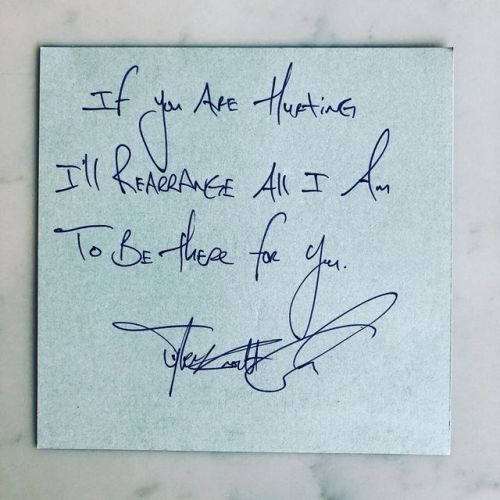 If you Are Hurting
I'll Rearrange All I Am
To Be there for you.
Tyler Knott